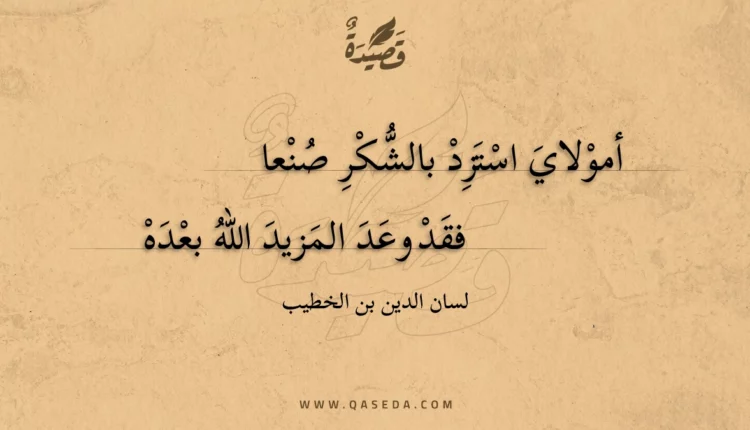 قَصِيْدَةٌ
أموْلايَ اسْتَزِدْ بالشُّكْرِ صُنْعا
فقَدْ وعَدَ المَزيدَ اللهُ بعْدَهْ
لسان الدين بن الخطيب
WWW.QASEDA.COM